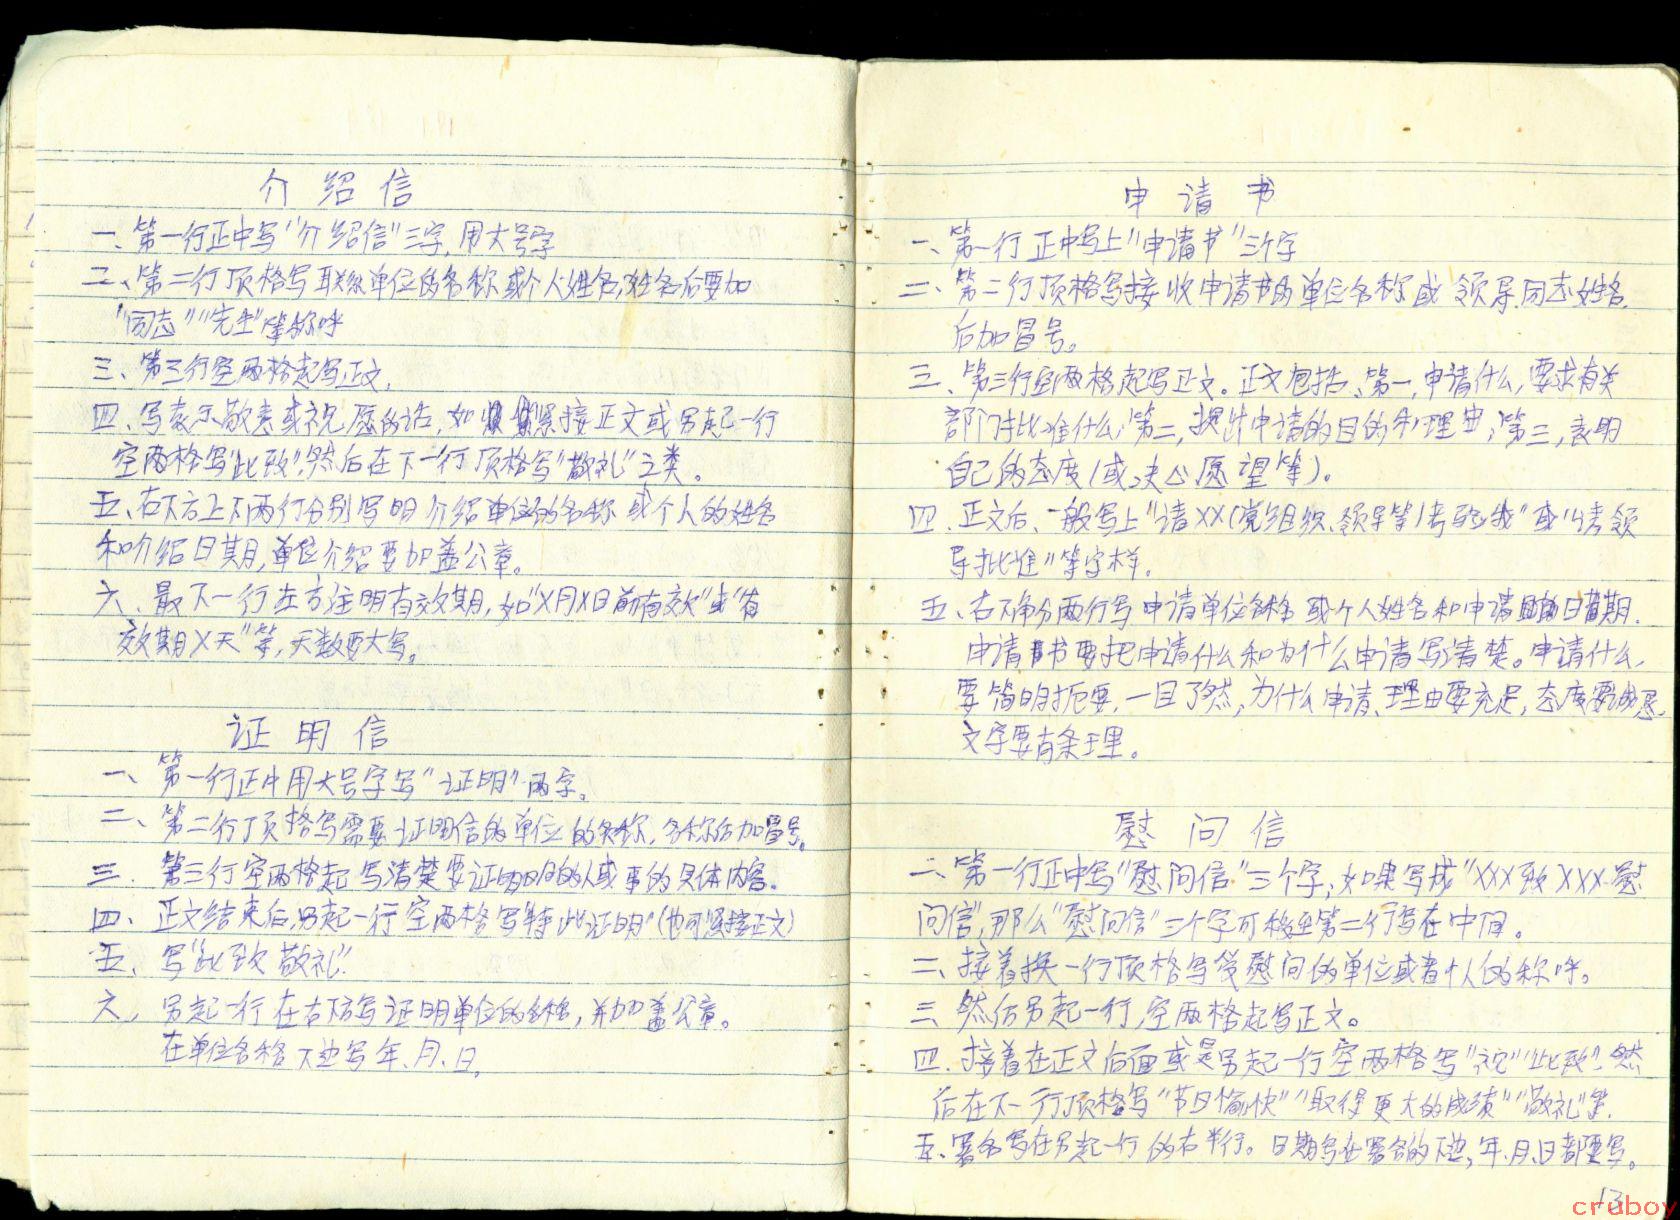 介绍信
一、第一行正中写“介绍信”三字,用大号字
二、第二行顶格写联系单位的名称或个人姓名,姓名后要加
“同志”“先生”等称呼
三、第三行空两格起写正文.
四、写表示敬意或祝愿的话,如紧接正文或另起一行
空两格写“此致”,然后在下一行顶格写“敬礼”之类。
五、右下方上下两行分别写明介绍单位的名称或个人的姓名
和介绍日期,单位介绍要加盖公章。
六、最下一行左方注明有效期,如“X月X日前有效”或“有
效期X天”等,天数要大写。
证明信
一、第一行正中用大号字写“证明”两字。
二、第二行顶格写需要证明信的单位的名称,名称后加冒号。
三.第三行空两格起写清楚要证明的人或事的具体内容。
四、正文结束后,另起一行空两格写“特此证明”(也可紧接正文)
五、写“此致敬礼”.
六、另起一行在右下方写证明单位的名称,并加盖公章。
在单位名称下边写年、月、日.
申请书
一、第一行正中写上“申请书”三个字
二、第二行顶格写接收申请书的单位名称或领导.同志姓名.
后加冒号。
三、第三行空两格起写正文。正文包括:第一,申请什么,要求有关
部门批准什么;第二,提出申请的目的和理由;第三,表明
自己的态度(或决心愿望等)。
四.正文后、一般写上“请XX(党组织、领导等)考验我”或“请领
导批准”等字样.
五、右下角分两行写申请单位名称或个人姓名和申请日期.
申请书要把申请什么和为什么申请写清楚。申请什么,
要简明扼要,一目了然,为什么申请、理由要充足,态度要诚恳,
文字要有条理。
慰问信
一、第一行正中写“慰问信”三个字,如果写成“XXX致XXX慰
问信”,那么“慰问信”三个字可移至第二行写在中间。
二、接着换一行顶格写受慰问的单位或者个人的称呼。
三.然后另起一行,空两格起写正文。
四.接着在正文后面或是另起一行空两格写“祝”“此致”,然
后在下一行顶格写“节日愉快”“取得更大的成绩”“敬礼”等.
五、署名写在另起一行的右半行。日期写在署名的下边,年、月、日都要写。
13
cruboy